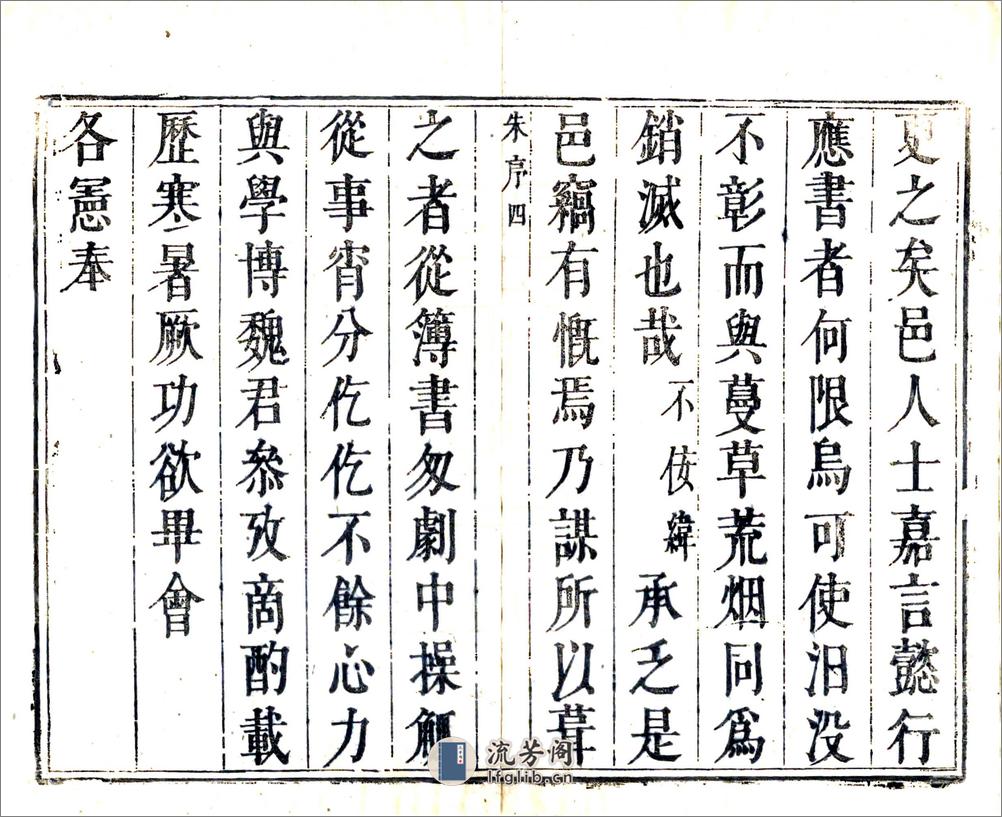 更之矣邑人士嘉言懿行
應書者何限烏可使汨没
不彰而與蔓草荒烟同爲
銷滅也哉不佞緯承乏是
邑竊有慨焉乃謀所以葺
朱序四
之者從簿書匆劇中操觚
從事宵分仡仡不餘心力
與學博魏君叅攷商酌載
歷寒暑厥功欲畢會
各憲奉
流芳阁
lfglib.cn